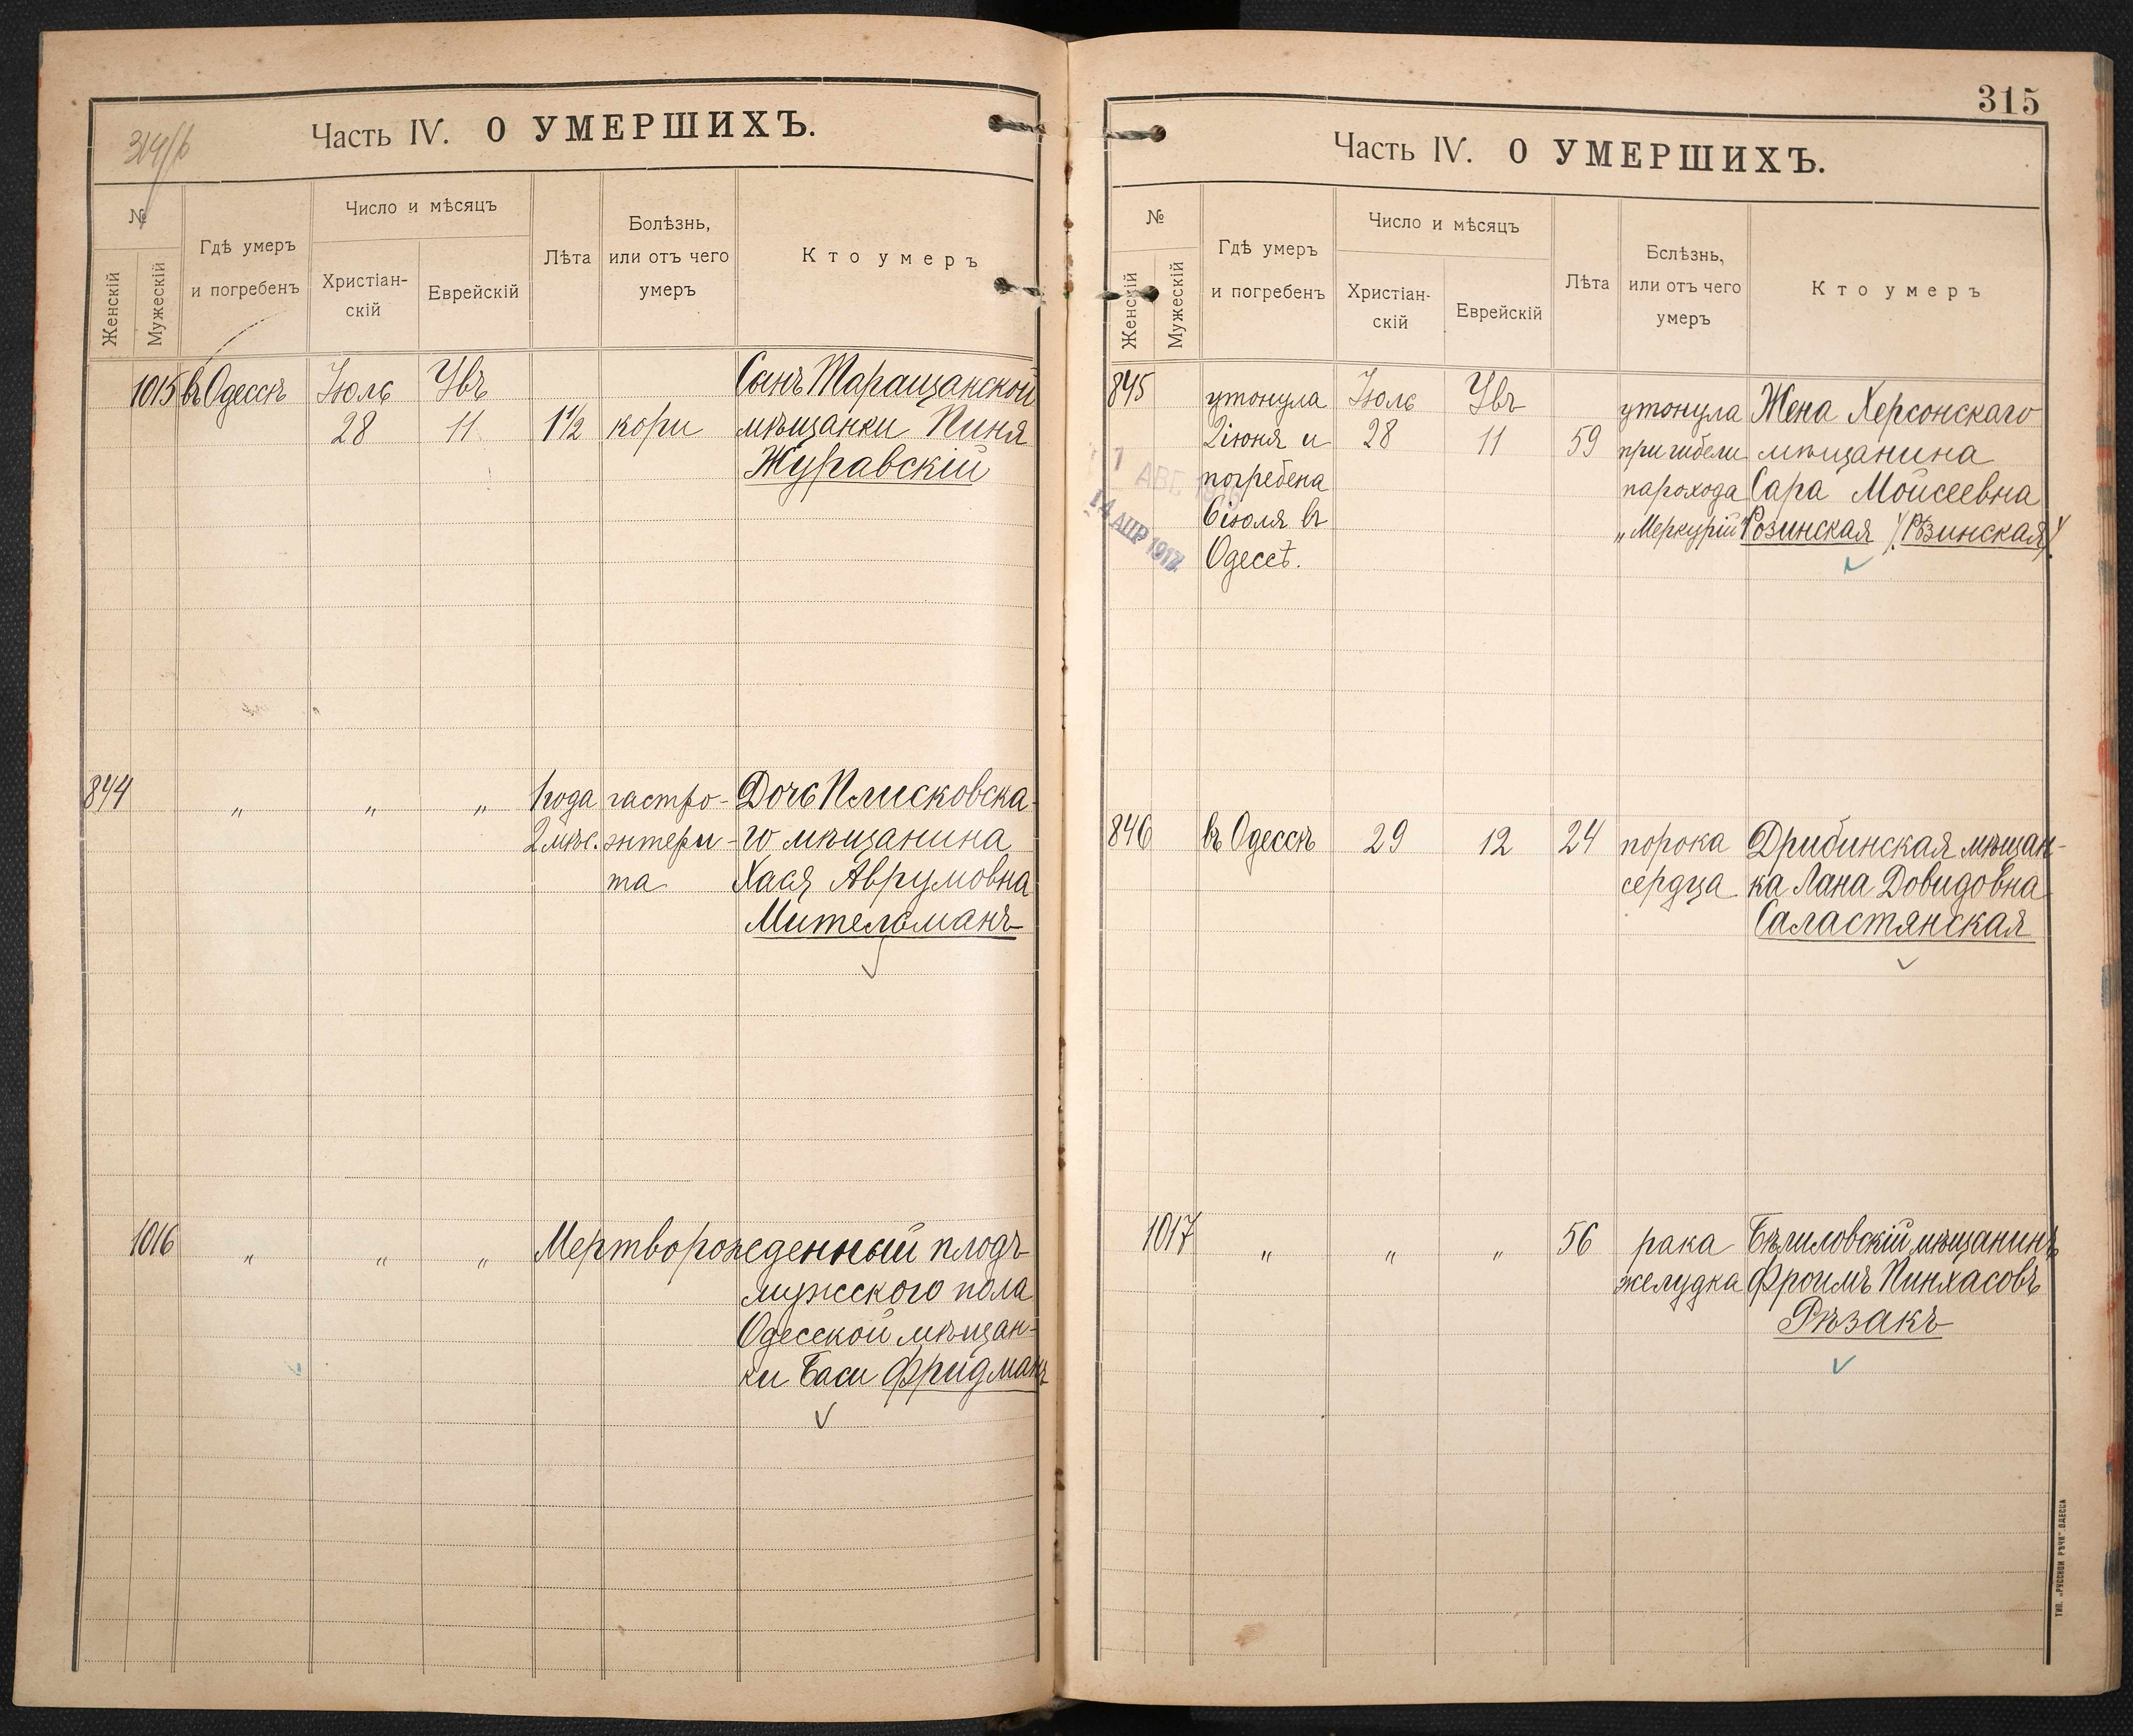 314/б
Часть IV. О УМЕРШИХЪ.
№
Женскій
Мужескій
Гдѣ умеръ
и погребенъ
Число и мѣсяцъ
Христіан-
скій
Еврейскій
Лѣта
Болѣзнь,
или отъ чего
умеръ
Кто умеръ
1015 въ Одессѣ Іюль Увъ Сынъ Таращанской
28 11 1½ кори мѣщанки Пиня
Журавскій
844 „ „ „ 1 года гастро- Дочь Плисковска-
2 мѣс. энтери- го мѣщанина
та Хася Аврумовна
Мительманъ
1016 „ „ „ Мертворожденный плодъ
мужского пола
Одесской мѣщан-
ки Баси Фридманъ
315
Часть IV. О УМЕРШИХЪ.
№
Женскій
Мужескій
Гдѣ умеръ
и погребенъ
Число и мѣсяцъ
Христіан-
скій
Еврейскій
Лѣта
Бслѣзнь,
или отъ чего
умеръ
Кто умеръ
845 утонула Іюль Увъ утонула Жена Херсонскаго
2 іюня и 28 11 59 при гибели мѣщанина
погребена парохода Сара Мойсеевна
6 іюля въ „Меркурій“ Розинская /Рѣзинская/.
Одессѣ.
14 АПР 1917
846 въ Одессѣ 29 12 24 порока Дрибинская мѣщан-
сердца ка Лана Довидовна
Саластянская
1017 „ „ „ 56 рака Бѣлиловскій мѣщанинъ
желудка Фроимъ Пинхасовъ
Рѣзакъ
ТИП. „РУССКОЙ РѢЧИ“ ОДЕССА